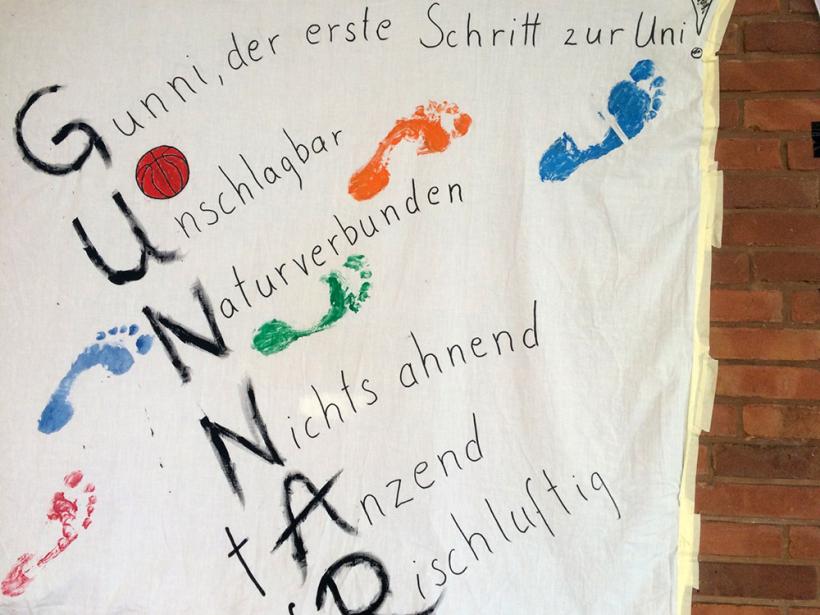 Gunni, der erste Schritt zur Uni!
Unschlagbar
Naturverbunden
Nichts ahnend
tAnzend
Rischluftig